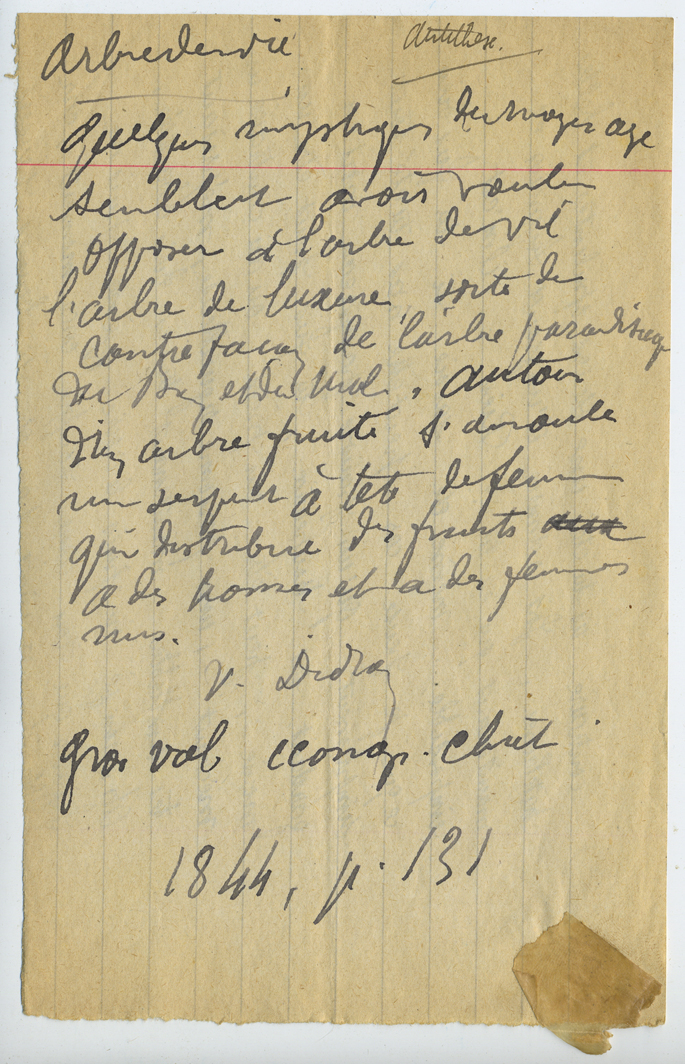 Arbre de vie
Antithèse.
Quelques mystiques du moyen age
semblent avoir voulu
opposer à l'arbre de vie
l'arbre de luxure, sorte de
contrefaçon de l'arbre paradisiaque
du Bien et du Mal. Autour
d'un arbre fruité s'enroule
un serpent à tête de femme
qui distribue des fruits aux
a des hommes et a des femmes
nus.
V. Didron
gros vol iconogr. chrét
1844, p. 131